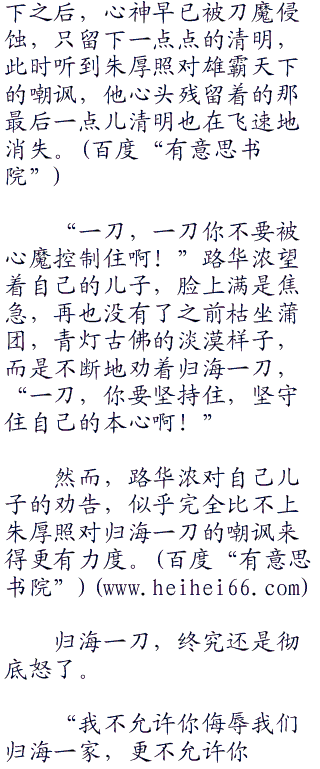 下之后，心神早已被刀魔侵
蚀，只留下一点点的清明，
此时听到朱厚照对雄霸天下
的嘲讽，他心头残留着的那
最后一点儿清明也在飞速地
消失。(百度“有意思书
院”)
“一刀，一刀你不要被
心魔控制住啊！”路华浓望
着自己的儿子，脸上满是焦
急，再也没有了之前枯坐蒲
团，青灯古佛的淡漠样子，
而是不断地劝着归海一刀，
“一刀，你要坚持住，坚守
住自己的本心啊！”
然而，路华浓对自己儿
子的劝告，似乎完全比不上
朱厚照对归海一刀的嘲讽来
得更有力度。(百度“有意思
书院”)(www.heihei66.com)
归海一刀，终究还是彻
底怒了。
“我不允许你侮辱我们
归海一家，更不允许你